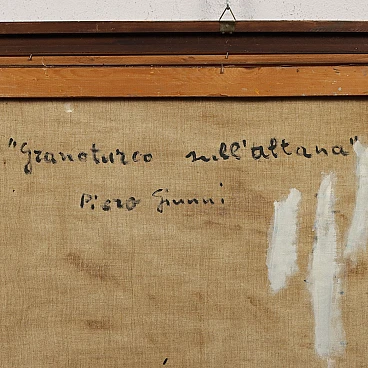 "Granoturco sull'altana"
Piero Giunni